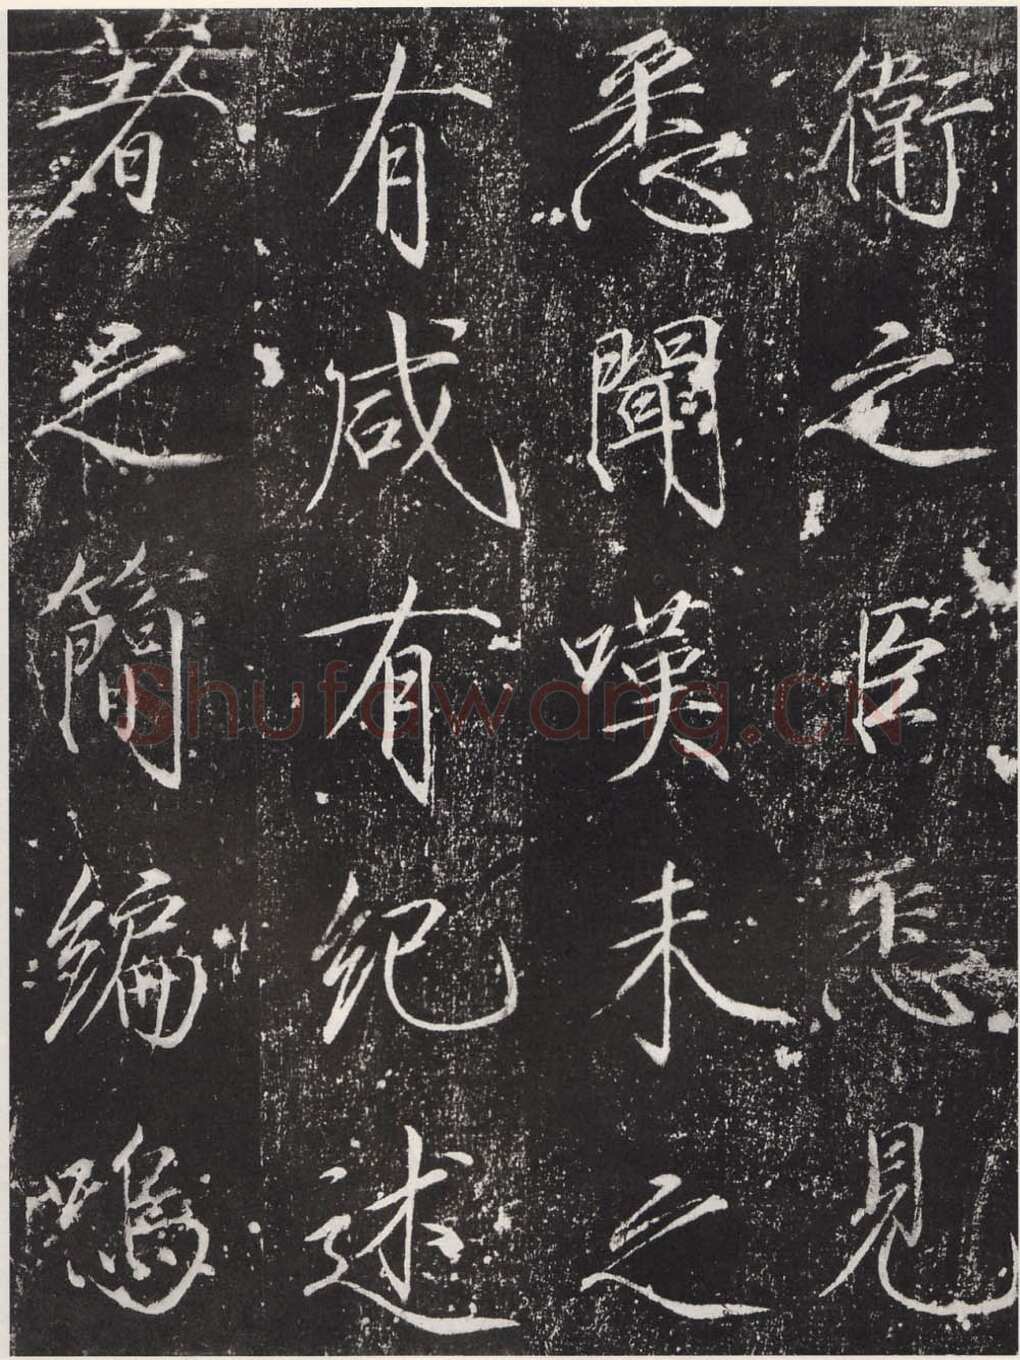 衛之臣見
悉聞嘆未之
有咸有紀述
著之簡編嗚
Shufawang.CN